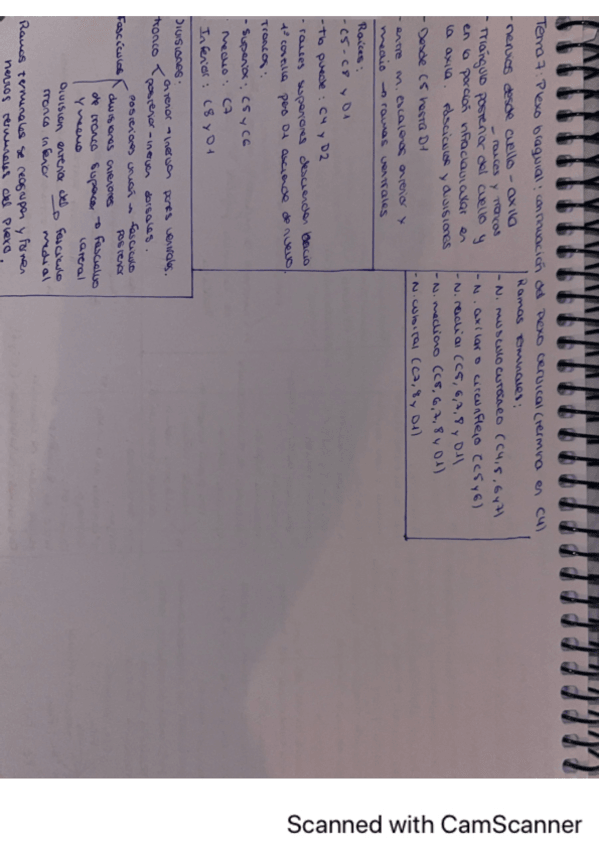 Tema 7: Plexo braquial: continuación del plexo cervical (termina en C4)
- nervios desde cuello - axila
- raíces y troncos
- Triángulo posterior del cuello y
en la porción infraclavicular en
la axila. fascículos y divisiones
- Desde C5 hasta D1
- entre m. escalenos anterior y
medio → ramas ventrales
Raíces:
- C5 - C8 y D1
- Tb puede: C4 y D2
- raíces superiores descienden hacia
1ª costilla pero D1 asciende de nuevo.
Troncos:
- Superior: C5 y C6
medio: C7
Inferior: C8 y D1
Divisiones:
tronco anterior → inervan partes ventrales.
posterior - inervan dorsales.
Fascículos
posteriores unidas → fascículo
posterior
divisiones anteriores
de tronco superior → fascículo
y medio lateral
División anterior del → fascículo
tronco inferior medial
Ramos terminales se reagrupan y forman
nervios terminales del plexo.
Ramas terminales:
- N. musculocutáneo (C4, 5, 6 y 7)
- N. axilar o circunflejo (C5 y 6)
- N. radial (C5, 6, 7, 8 y D1)
- N. mediano (C5, 6, 7, 8 y D1)
- N. cubital (C7, 8 y D1)
Scanned with CamScanner